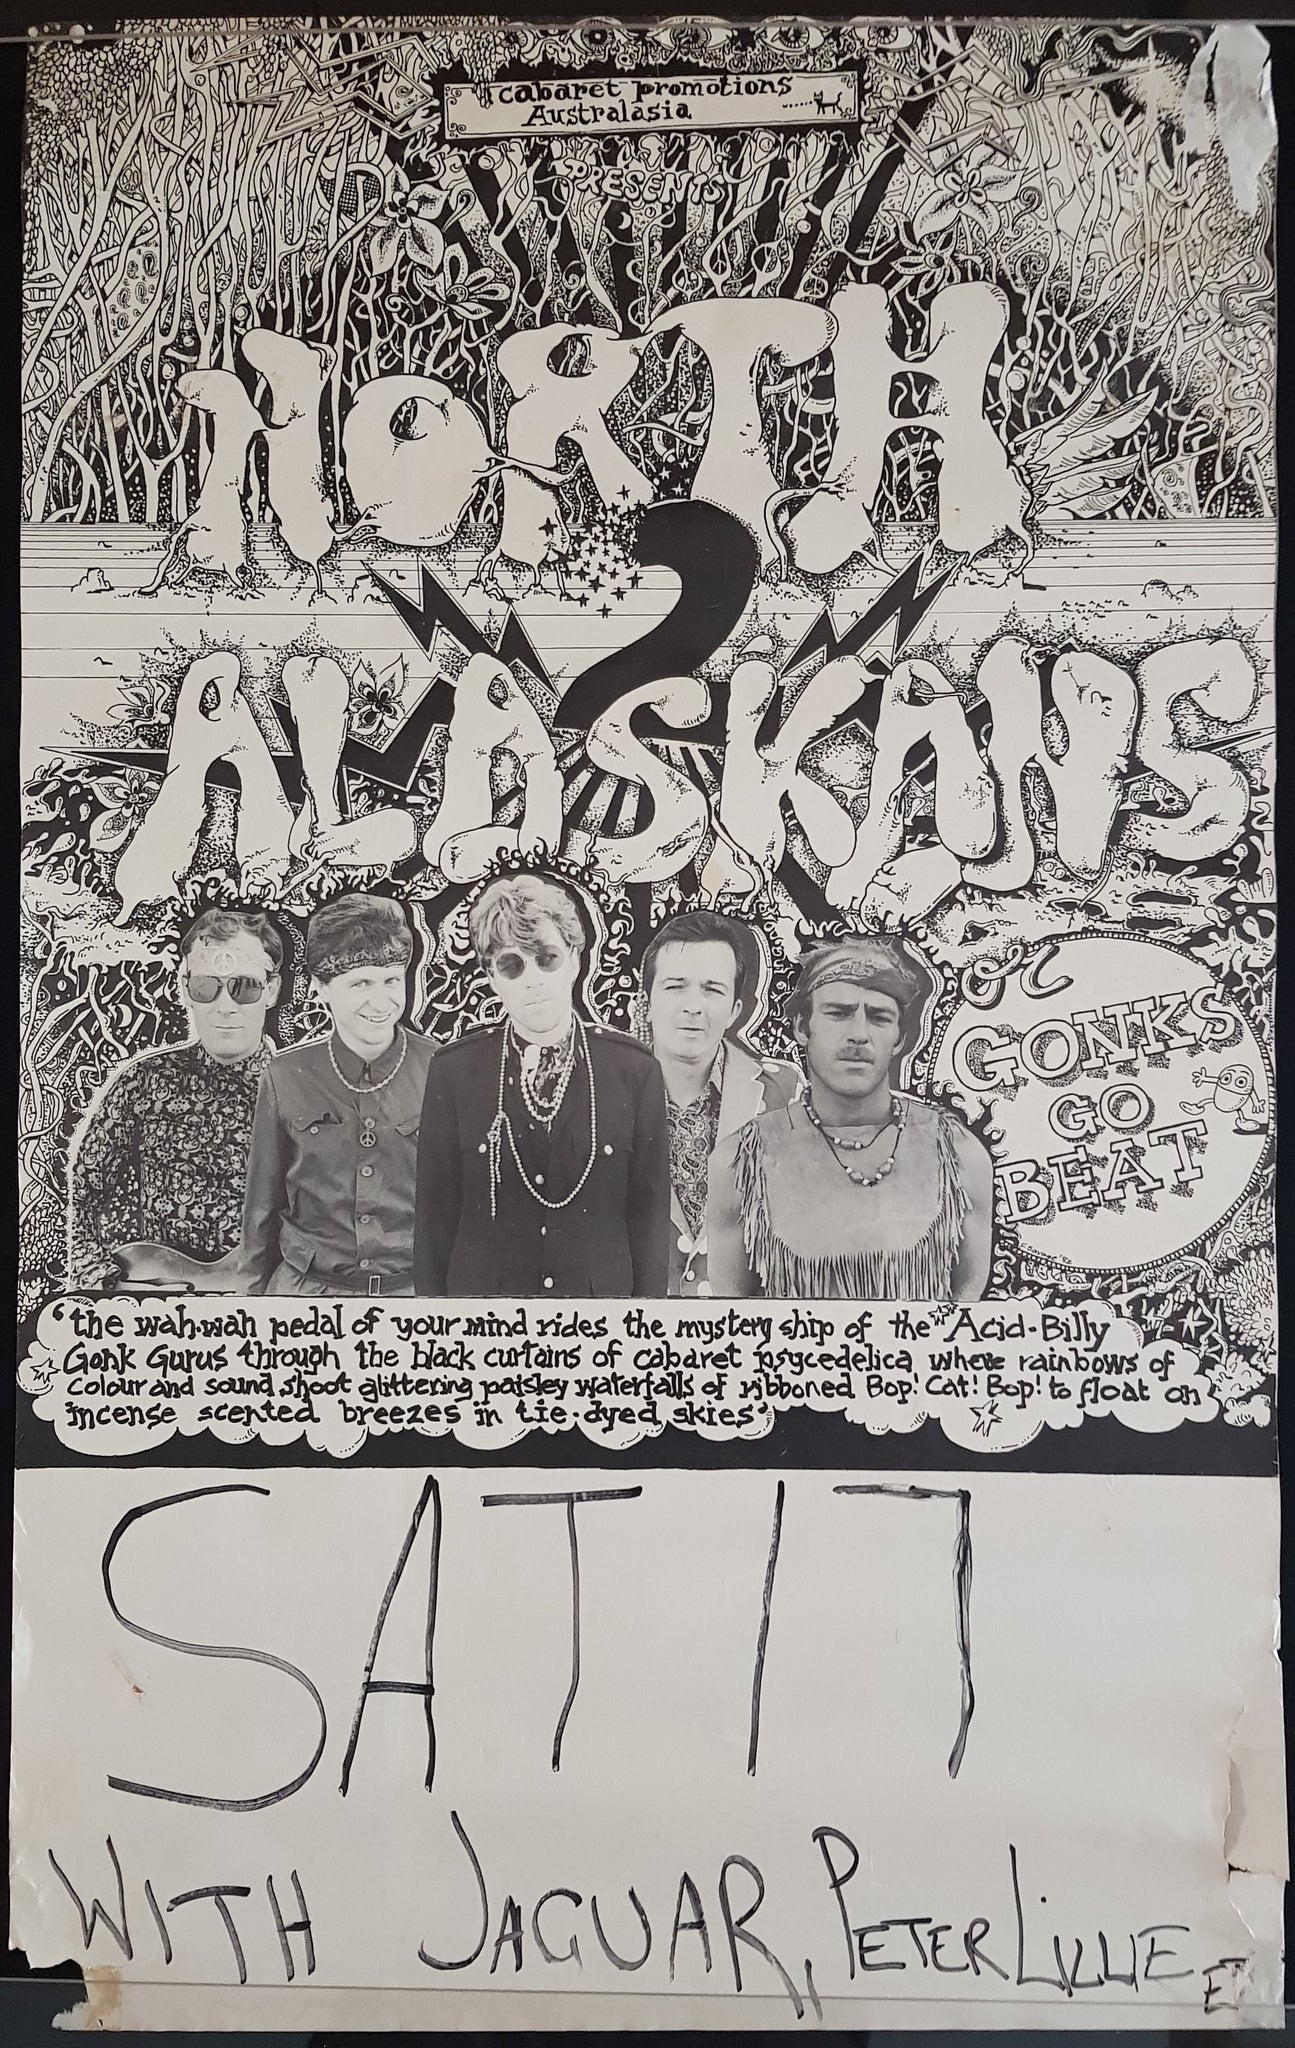 cabaret promotions
Australasia
PRESENTS
NORTH
2
ALASKANS
or
GONKS
GO
BEAT
'the wah-wah pedal of your mind rides the mystery ship of the Acid-Billy
Gonk Gurus through the black curtains of cabaret psycedelica where rainbows of
colour and sound shoot glittering paisley waterfalls of ribboned Bop! Cat! Bop! to float on
incense scented breezes in tie-dyed skies'
SAT 17
WITH JAGUAR, PETER LILLIE